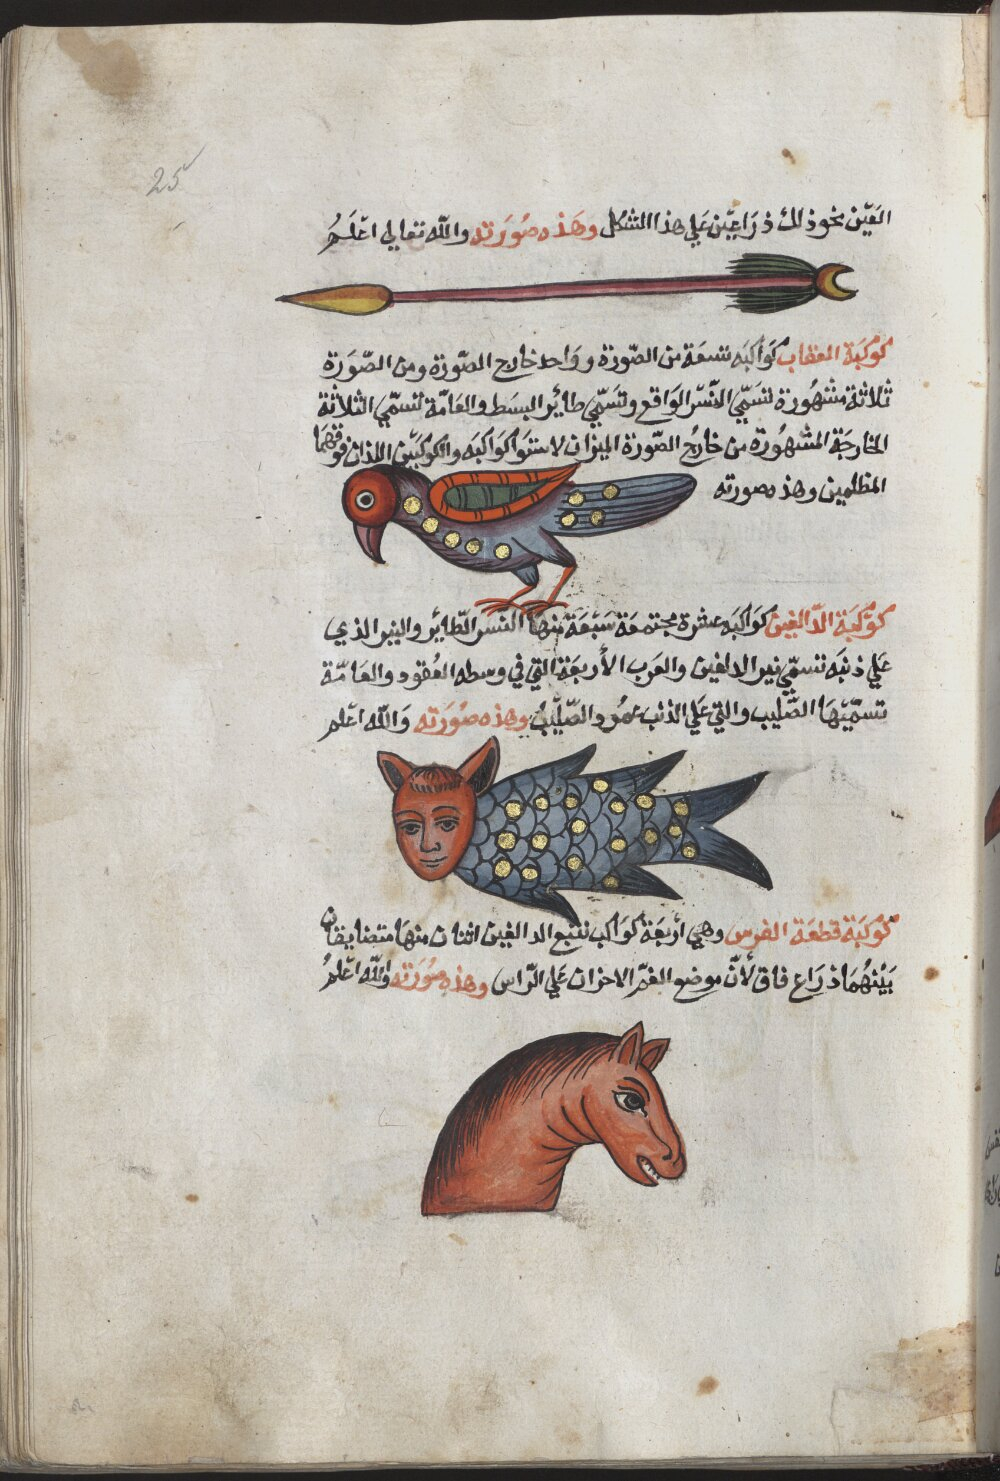 25
العَيْن نحو ذلك ذرَاعين عَلي هذا الشكل وهَذه صُورَته والله تعالي اعْلَمُ
كوكبَة العقاب كوَاكبَه تسعَة من الصّورة ووَاحد خارج الصّورة ومن الصّورَة
ثلاثة مشهُورة تسَمّي النّسْر الوَاقع وتسَمّي طائر البسَط والعَامّة تسمّي الثلاثة
الخارجَة المشهُورة من خارجُ الصّورة الميزان لاستوَا كوَاكبَه والكوكبَيْن اللذان فوقهَما
المظلمين وهذه صورته
كوكبَة الدّالفين كوَاكبَه عشرة مجتمعَة سَبْعَة منهَا النّسَر الطّائر والنير الذي
عَلي ذنبَه تسمّي نير الدلفين والعَرب الأربعَة التي في وسطه العُقود والعَامّة
تسمّيْهَا الصّليب والتي عَلي الذنب عمُود الصّليْبُ وهذه صُورَته وَالله اعْلم
كوكبَة قطعَة الفرس وهي أربعَة كوَاكب تتبع الدالفين اثنان منهَا متضايقان
بَيْنهُمَا ذرَاع فاق لأنّ موضع الفمّ الاخران عَلي الرّاس وهذه صُورَته والله اعْلمُ